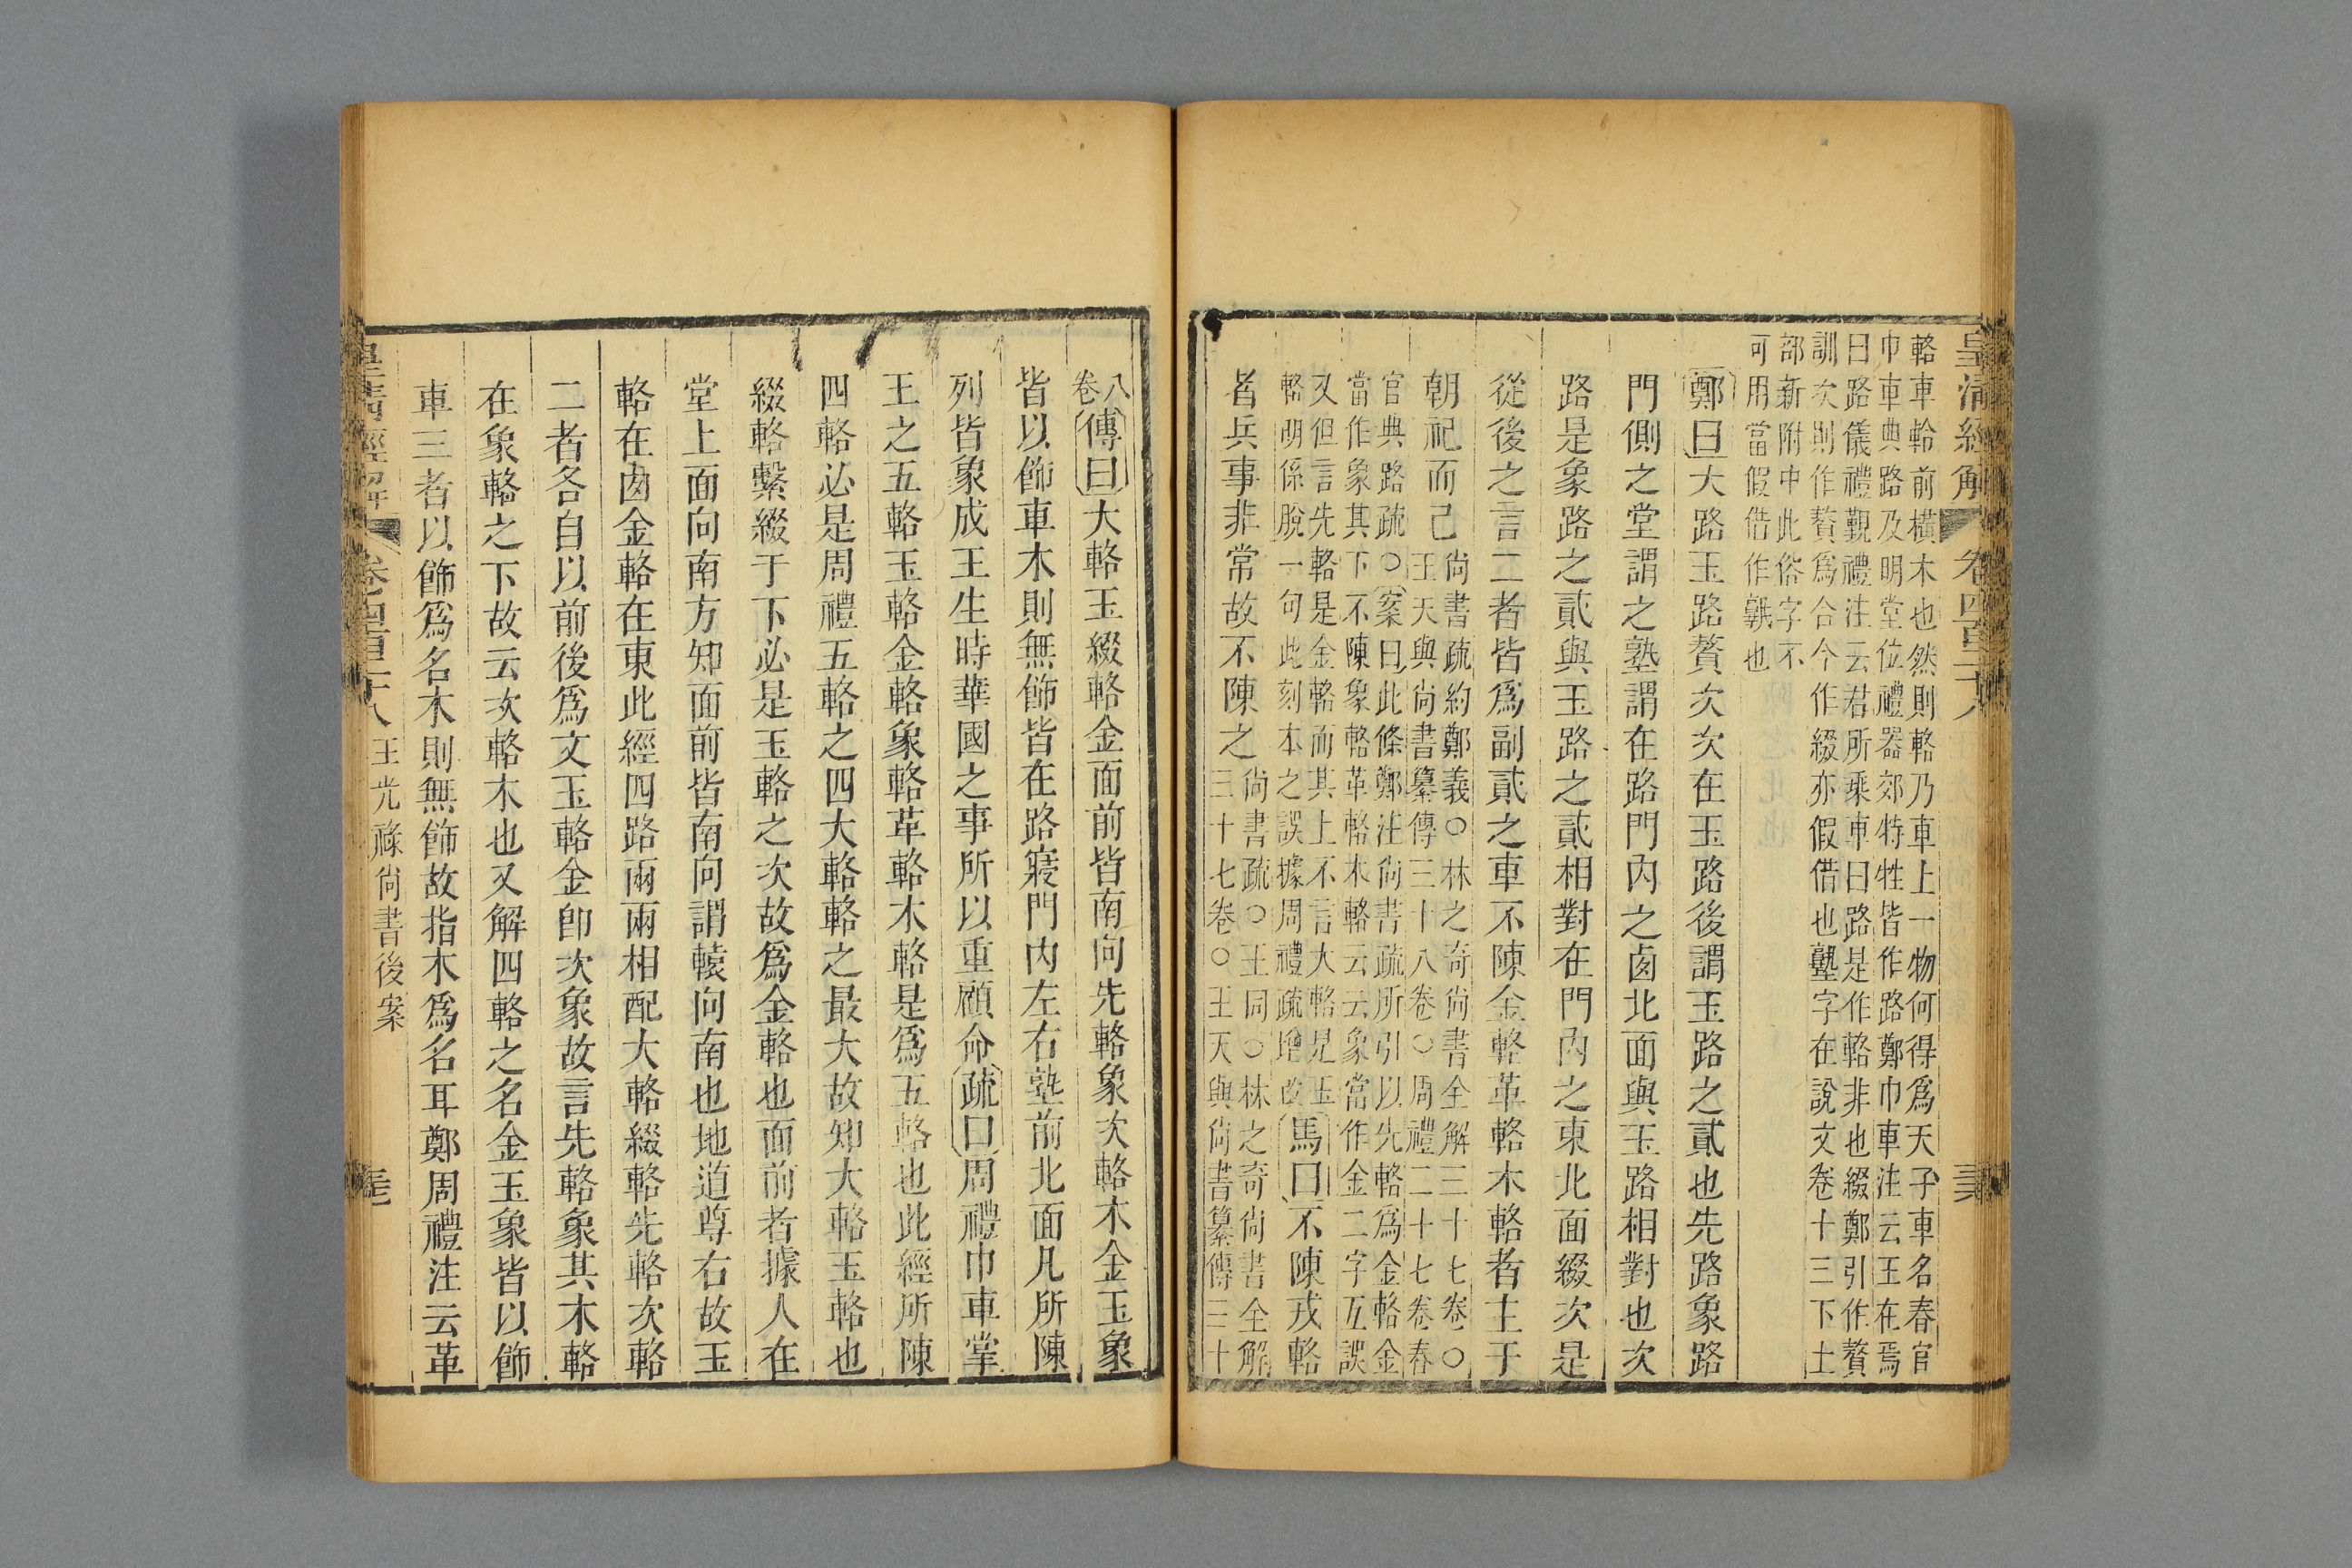 皇清經解 卷四百二十八
輅車軨前橫木也然則輅乃車上一物何得爲天子車名春官
巾車典路及明堂位禮器郊特牲皆作路鄭巾車注云玉在焉
曰路儀禮覲禮注云君所乘車曰路是作輅非也綴鄭引作贅
訓次則作贅爲合今作綴亦假借也塾字在說文卷十三下土
部新附中此俗字不
可用當假借作𡑞也
鄭曰大路玉路贅次次在玉路後謂玉路之貳也先路象路
門側之堂謂之塾謂在路門內之鹵北面與玉路相對也次
路是象路之貳與玉路之貳相對在門內之東北面綴次是
從後之言二者皆爲副貳之車不陳金輅革輅木輅者主于
朝祀而已
尙書疏約鄭義○林之奇尙書全解三十七卷○
王天與尙書纂傳三十八卷○周禮二十七卷春
官典路疏○案曰此條鄭注尙書疏所引以先輅爲金輅金
當作象其下不陳象輅革輅木輅云云象當作金二字互誤
又但言先輅是金輅而其上不言大輅是玉
輅明係脫一句此刻本之誤據周禮疏增改
馬曰不陳戎輅
者兵事非常故不陳之
尙書疏○王同○林之奇尙書全解
三十七卷○王天與尙書纂傳三十
八
卷
傳曰大輅玉綴輅金面前皆南向先輅象次輅木金玉象
皆以飾車木則無飾皆在路寢門內左右塾前北面凡所陳
列皆象成王生時華國之事所以重顧命疏曰周禮巾車掌
王之五輅玉輅金輅象輅革輅木輅是爲五輅也此經所陳
四輅必是周禮五輅之四大輅輅之最大故知大輅玉輅也
綴輅繫綴于下必是玉輅之次故爲金輅也面前者據人在
堂上面向南方知面前皆南向謂轅向南也地道尊右故玉
輅在鹵金輅在東此經四路兩兩相配大輅綴輅先輅次輅
二者各自以前後爲文玉輅金卽次象故言先輅象其木輅
在象輅之下故云次輅木也又解四輅之名金玉象皆以飾
車三者以飾爲名木則無飾故指木爲名耳鄭周禮注云革
皇清經解 卷四百二十八 王光祿尙書後案